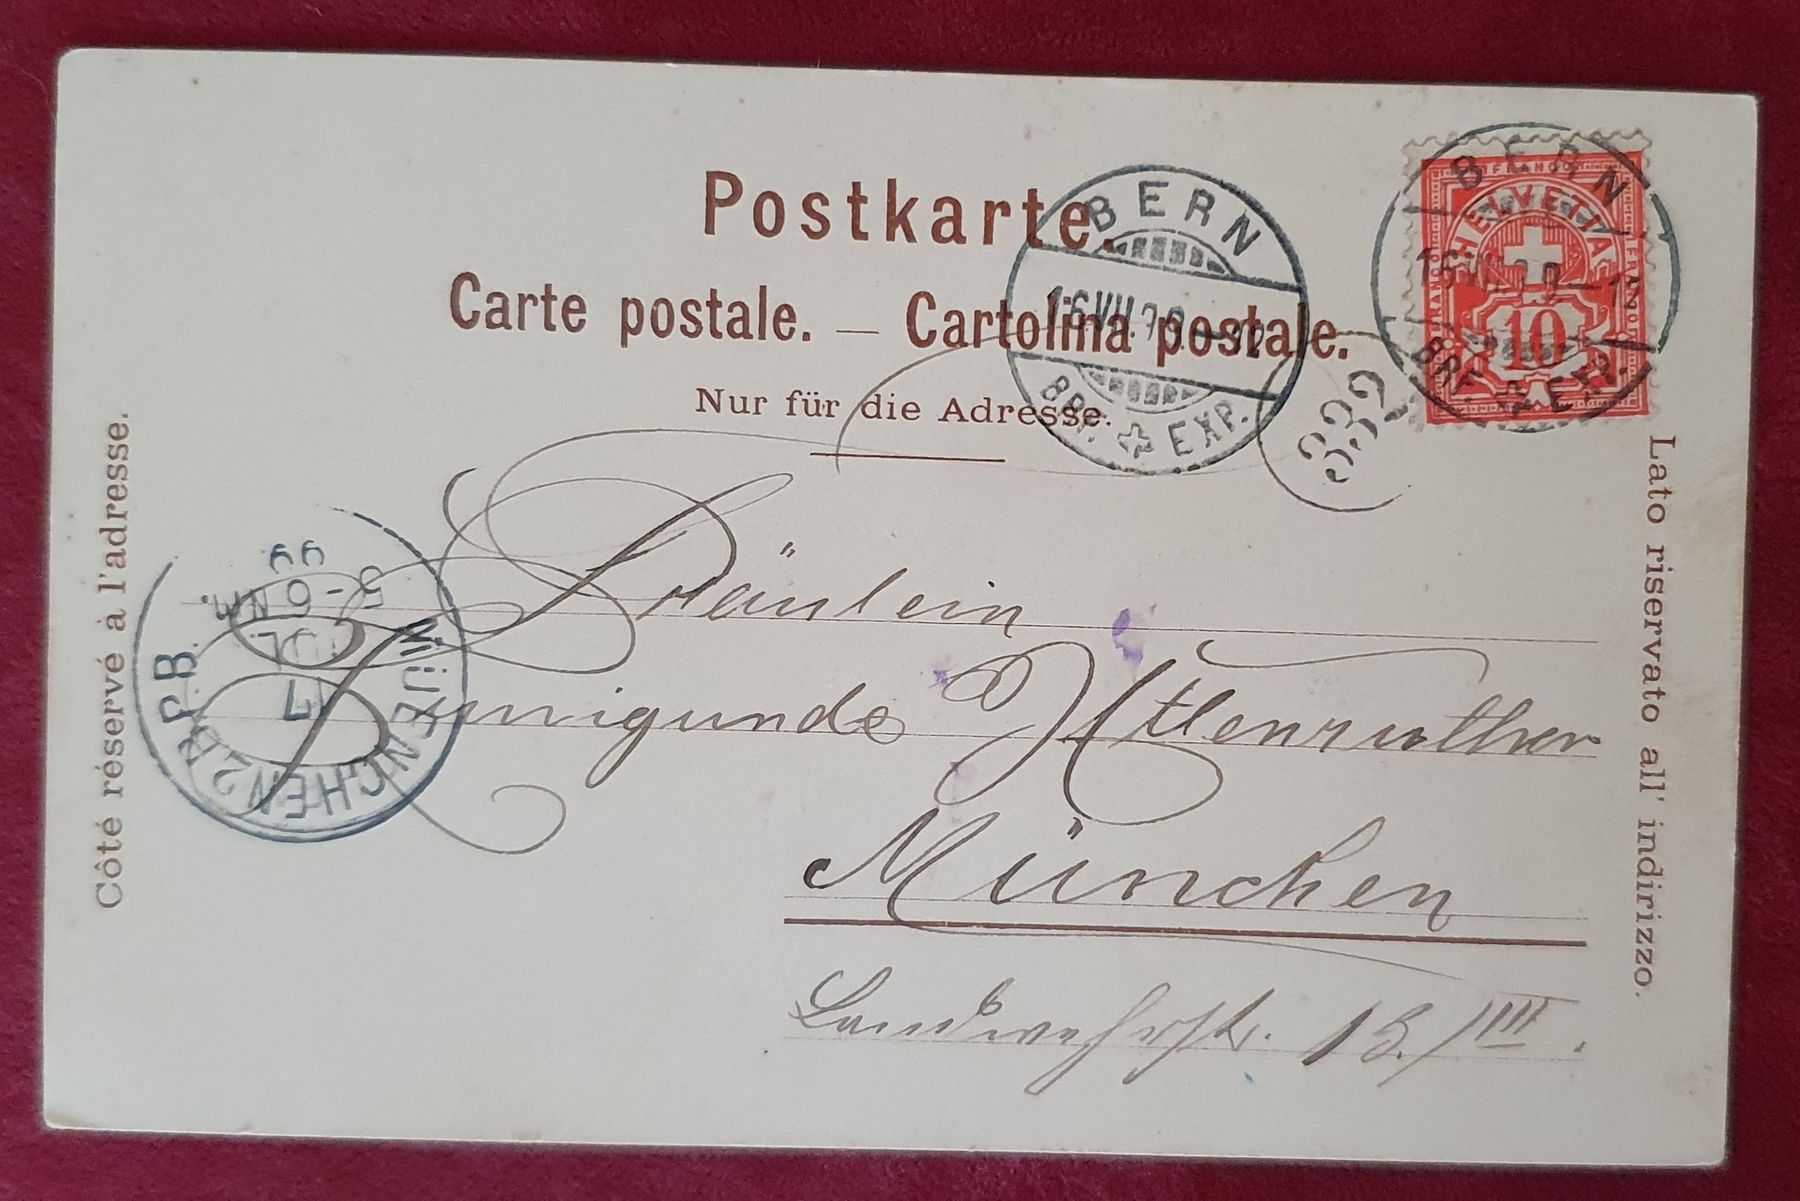 Postkarte.
Carte postale. — Cartolina postale.
Nur für die Adresse.
Côté réservé à l'adresse.
Lato riservato all' indirizzo.
BERN
16.VII.99.–12
BRF. EXP.
BERN
16.VII.99–12
BRF. EXP.
HELVETIA
FRANCO
10
332
MÜENCHEN 2 B.P.B.
17
JUL
5-6 NM.
99
Fräulein
Kunigunde Uttenruther
München
Landwehrstr. 13./III.